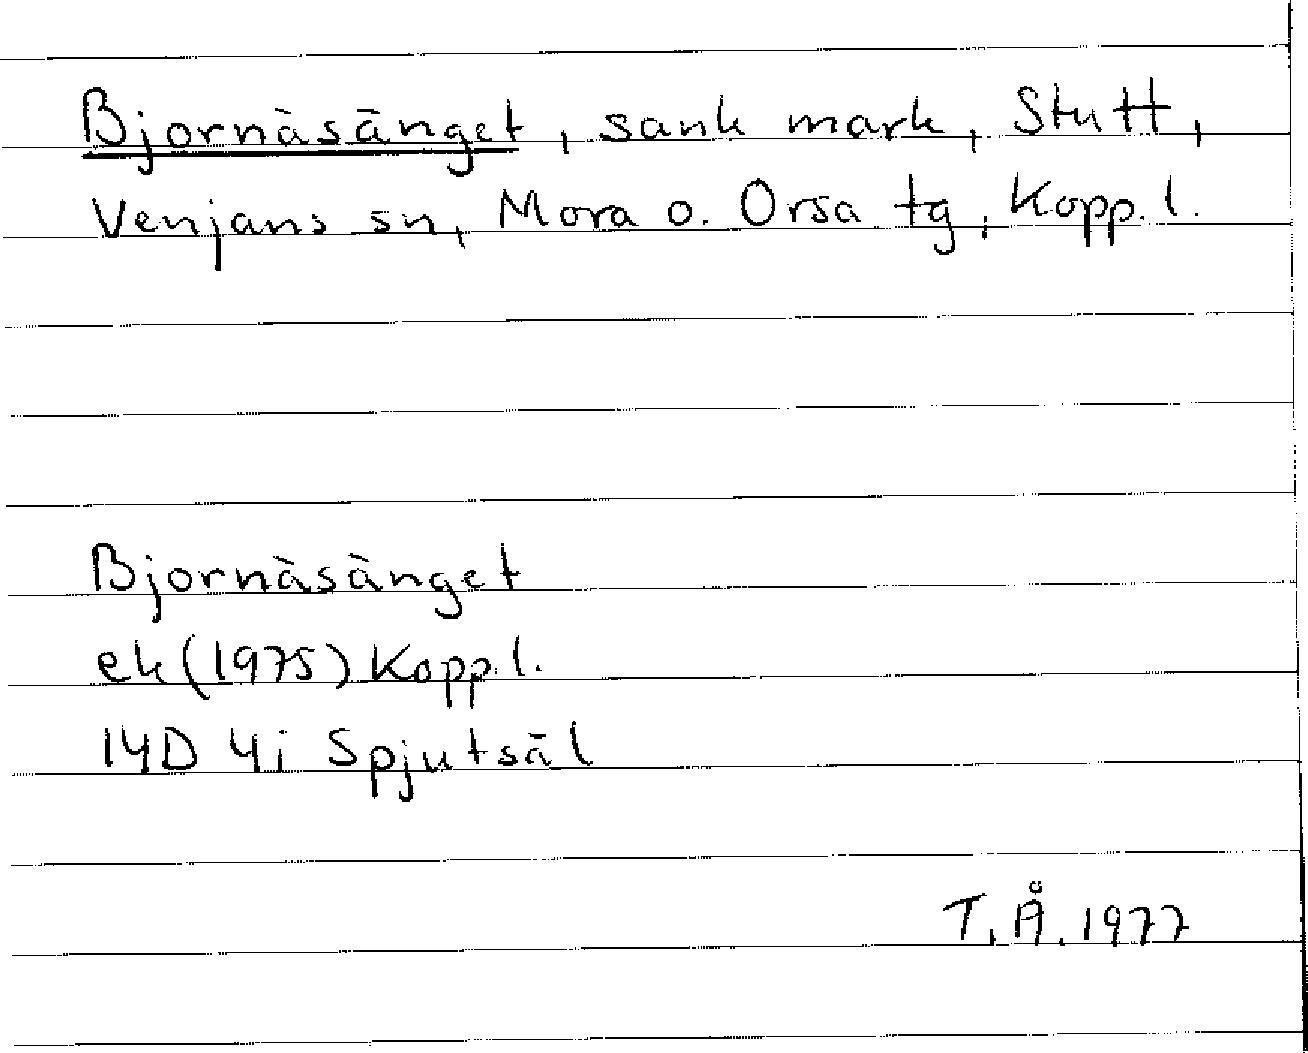 Bjornäsänget, sank mark, Stutt,
Venjans sn, Mora o. Orsa tg, Kopp. l.
Bjornäsänget
ek (1975) Kopp. l.
14D 4i Spjutsäl
T. Å. 1977